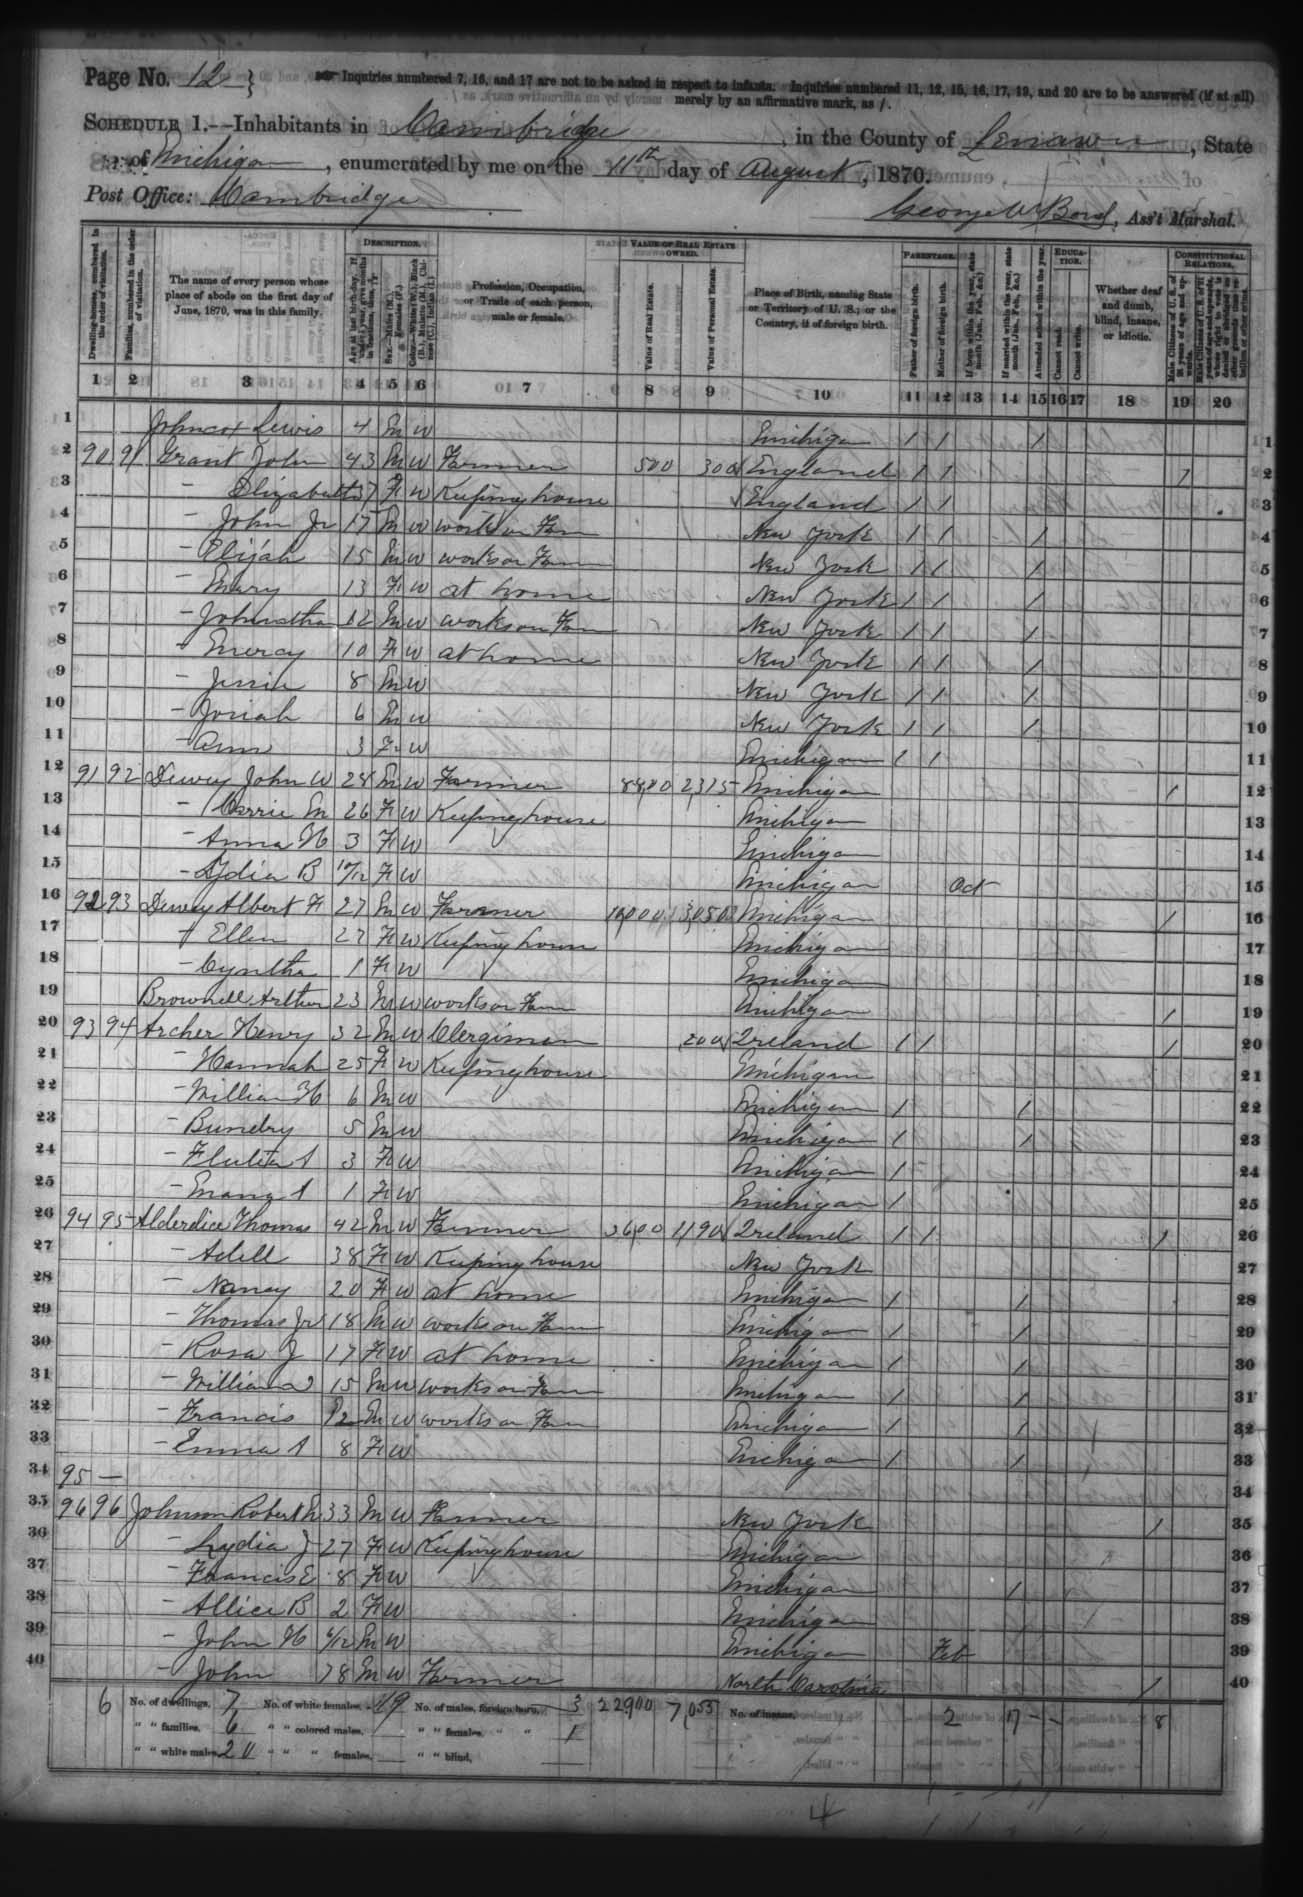 Page No. 12
Inquiries numbered 7, 16, and 17 are not to be asked in respect to infants. Inquiries numbered 11, 12, 15, 16, 17, 19, and 20 are to be answered (if at all)
merely by an affirmative mark, as /.
SCHEDULE 1.—Inhabitants in Cambridge, in the County of Lenawee, State
of Michigan, enumerated by me on the 11th day of August, 1870.
Post Office: Cambridge
George W Boyd, Ass't Marshal.
DESCRIPTION. VALUE OF REAL ESTATE OWNED. PARENTAGE. EDUCATION. CONSTITUTIONAL RELATIONS.
Dwelling-houses, numbered in the order of visitation.
Families, numbered in the order of visitation.
The name of every person whose place of abode on the first day of June, 1870, was in this family.
Age at last birth-day. If under 1 year, give months in fractions, thus, 3/12
Sex.—Males (M.), Females (F.)
Color.—White (W.), Black (B.), Mulatto (M.), Chinese (C.), Indian (I.)
Profession, Occupation, or Trade of each person, male or female.
Value of Real Estate.
Value of Personal Estate.
Place of Birth, naming State or Territory of U. S.; or the Country, if of foreign birth.
Father of foreign birth.
Mother of foreign birth.
If born within the year, state month (Jan., Feb., &c.)
If married within the year, state month (Jan., Feb., &c.)
Attended school within the year.
Cannot read.
Cannot write.
Whether deaf and dumb, blind, insane, or idiotic.
Male Citizens of U. S. of 21 years of age and upwards.
1 2 3 4 5 6 7 8 9 10 11 12 13 14 15 16 17 18 19 20
1 Lewis 4 M W Michigan / / / 1
2 90 91 Grant John 43 M W Farmer 500 300 England / / / 2
3 — Elizabeth 37 F W Keeping house England / / 3
4 — John Jr 17 M W works on Farm New York / / / 4
5 — Elijah 15 M W works on Farm New York / / / 5
6 — Mary 13 F W at home New York / / / 6
7 — Johnathan 12 M W works on Farm New York / / / 7
8 — Mercy 10 F W at home New York / / / 8
9 — Jessie 8 M W New York / / / 9
10 — Josiah 6 M W New York / / / 10
11 — Ann 3 F W Michigan / / 11
12 91 92 Dewey John W 28 M W Farmer 8800 2315 Michigan / 12
13 — Carrie M 26 F W Keeping house Michigan 13
14 — Anna H 3 F W Michigan 14
15 — Lydia B 10/12 F W Michigan Oct 15
16 92 93 Dewey Albert F 27 M W Farmer 10000 3050 Michigan / 16
17 — Ellen 27 F W Keeping house Michigan 17
18 — Cyntha 1 F W Michigan 18
19 Brownell Arther 23 M W works on Farm Michigan / 19
20 93 94 Archer Henry 32 M W Clergiman 200 Ireland / / / 20
21 — Hannah 25 F W Keeping house Michigan 21
22 — William H 6 M W Michigan / / 22
23 — Bundry 5 M W Michigan / / 23
24 — 3 F W Michigan / 24
25 — 1 F W Michigan / 25
26 94 95 Alderdice Thomas 42 M W Farmer 3600 1190 Ireland / / / 26
27 — Adell 38 F W Keeping house New York 27
28 — Nancy 20 F W at home Michigan / / 28
29 — Thomas Jr 18 M W works on Farm Michigan / / 29
30 — Rosa J 17 F W at home Michigan / / 30
31 — William 15 M W works on Farm Michigan / / 31
32 — Francis 12 M W works on Farm Michigan / / 32
33 — Emma A 8 F W Michigan / / 33
34 95 — 34
35 96 96 Johnson Robert 33 M W Farmer New York / 35
36 — Lydia J 27 F W Keeping house Michigan 36
37 — Francis E 8 F W Michigan / 37
38 — Allice B 2 F W Michigan 38
39 — John H 6/12 M W Michigan Feb 39
40 — John 78 M W Farmer North Carolina / 40
6 No. of dwellings, 7 No. of white females, 19 No. of males, foreign born, 3 22900 7,055 No. of insane, 2 17 8
" " families, 6 " " colored males, " " females, " " 1
" " white males, 20 " " " females, " " blind,
4